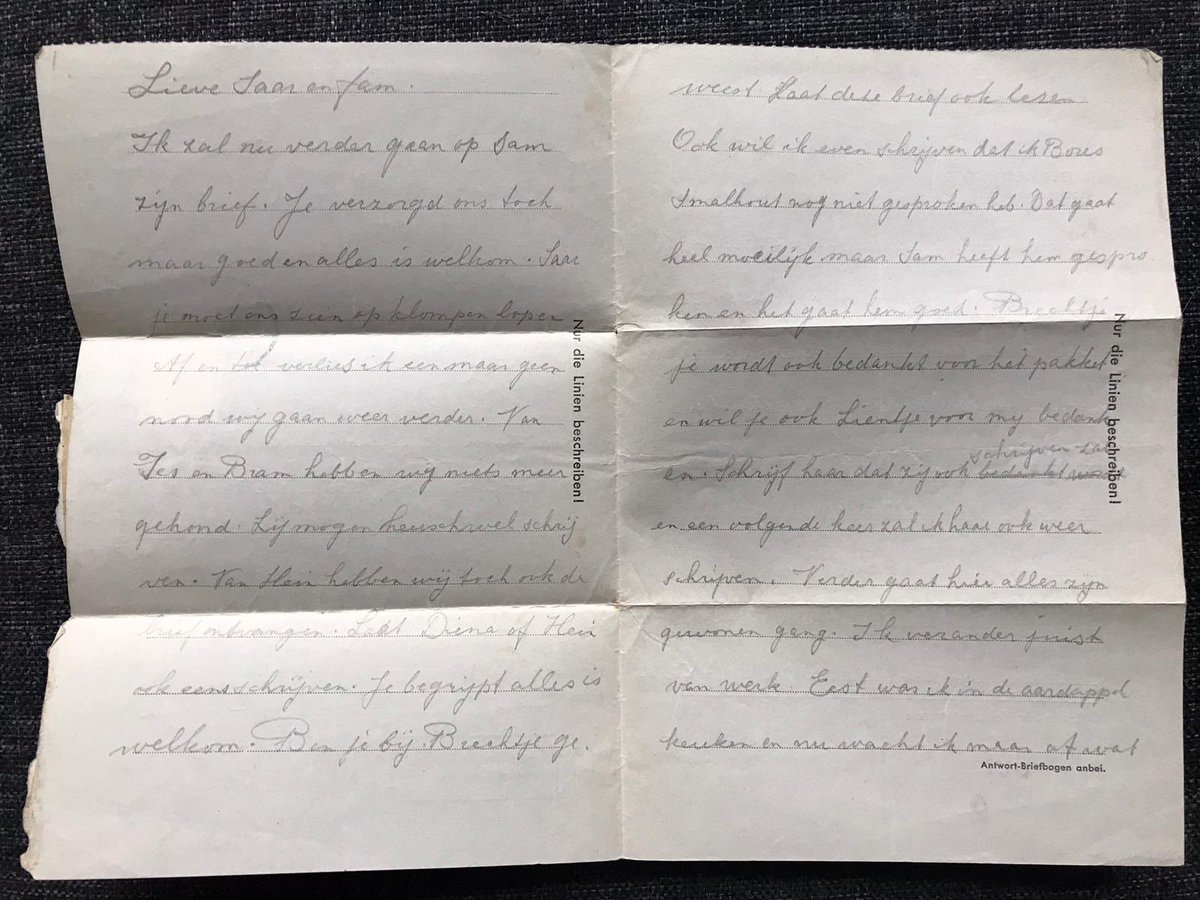 Lieve Saar en fam.
Ik zal nu verder gaan op Sam
zijn brief. Je verzorgd ons toch
maar goed en alles is welkom. Saar
je moet ons zien op klompen lopen
Af en toe verlies ik een maar geen
nood wy gaan weer verder. Van
en Bram hebben wy niets meer
gehoord. Zij mogen heusch wel schrij
ven. Van Hein hebben wij toch ook de
brief ontvangen. Laat Diena of Hein
ook eens schrijven. Je begrijpt alles is
welkom. Ben je bij Brechtje ge.
Nur die Linien beschreiben!
weest. Laat deze brief ook lezen
Ook wil ik even schrijven dat ik
Smalhout nog niet gesproken heb. Dat gaat
heel moeilijk maar Sam heeft hem gespro
ken en het gaat hem goed. Brechtje
je wordt ook bedankt voor het pakket
en wil je ook Lientje voor my bedank
schrijven zal
en. Schrijf haar dat zij ook bedankt wordt
en een volgende keer zal ik haar ook weer
schrijven. Verder gaat hier alles zijn
gewonen gang. Ik verander juist
van werk Eest was ik in de aardappel
keuken en nu wacht ik maar af wat
Nur die Linien beschreiben!
Antwort-Briefbogen anbei.